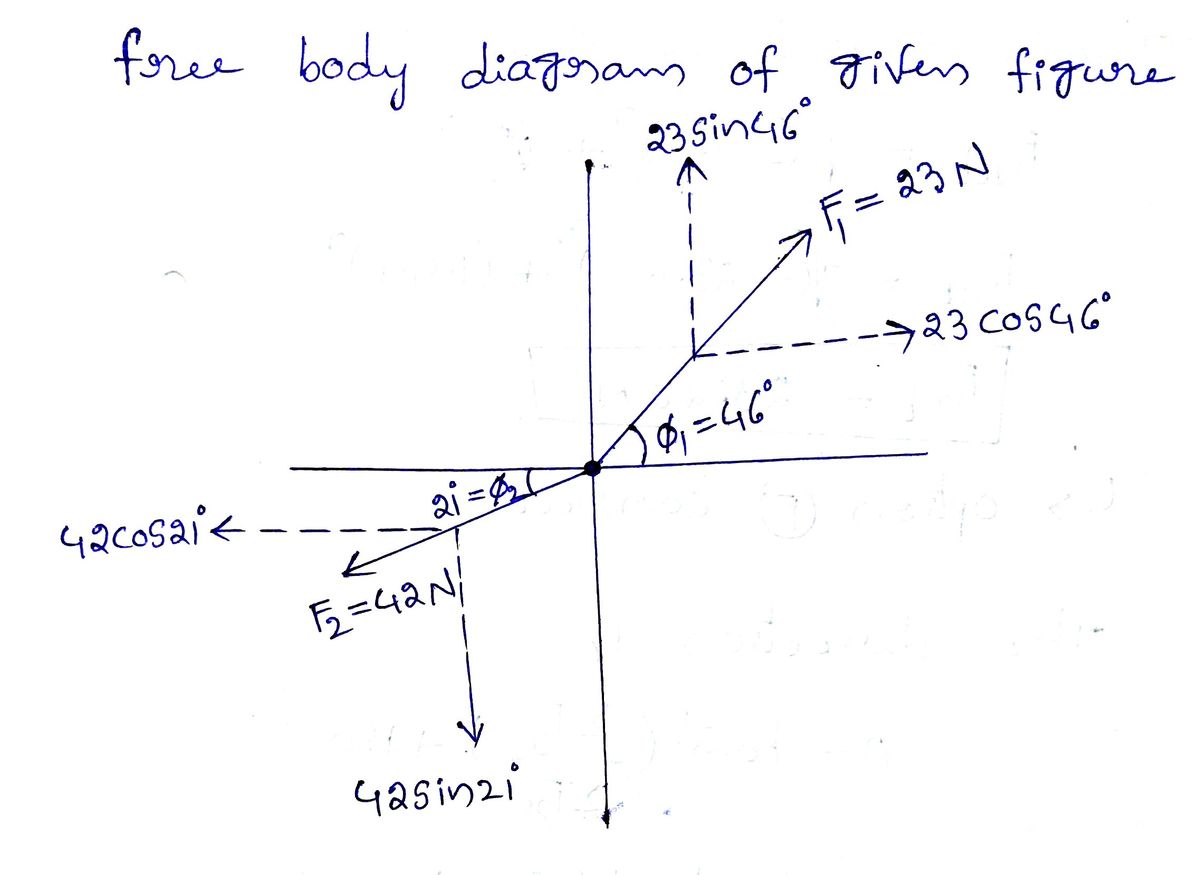 free body diagram of given figure
23 sin46°
F₁ = 23 N
23 cos46°
ϕ₁ = 46°
21° = ϕ₂
42cos21°
F₂ = 42 N
42sin21°